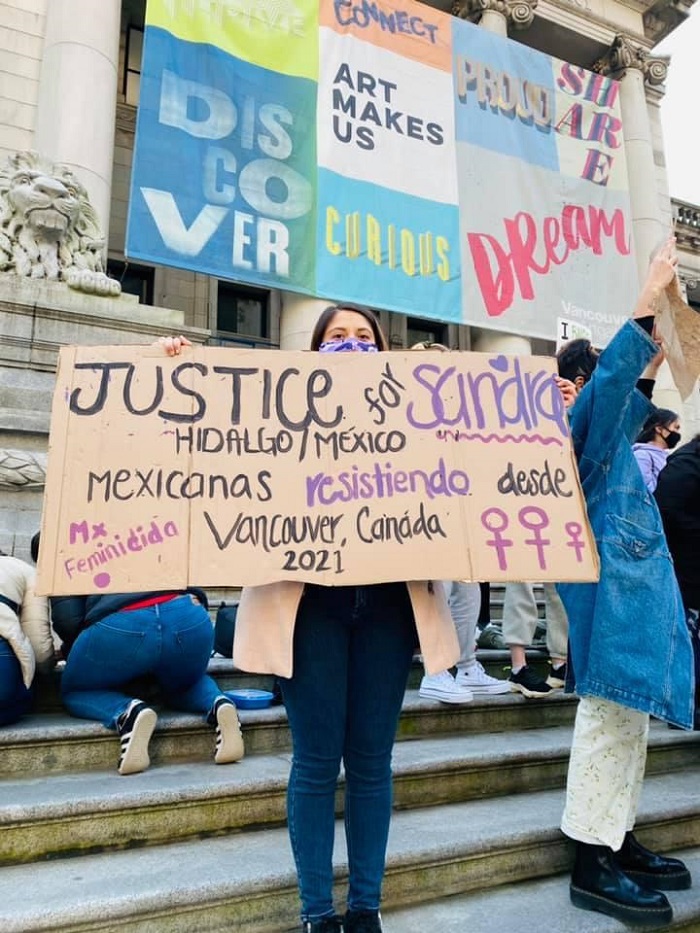 CONNECT
DISCOVER
ART
MAKES
US
PROUD
SHARE
CURIOUS
DREAM
Vancouver
I
JUSTICE for Sandra
HIDALGO/MÉXICO
mexicanas resistiendo desde
Mx
Feminicida
Vancouver, Canáda
2021